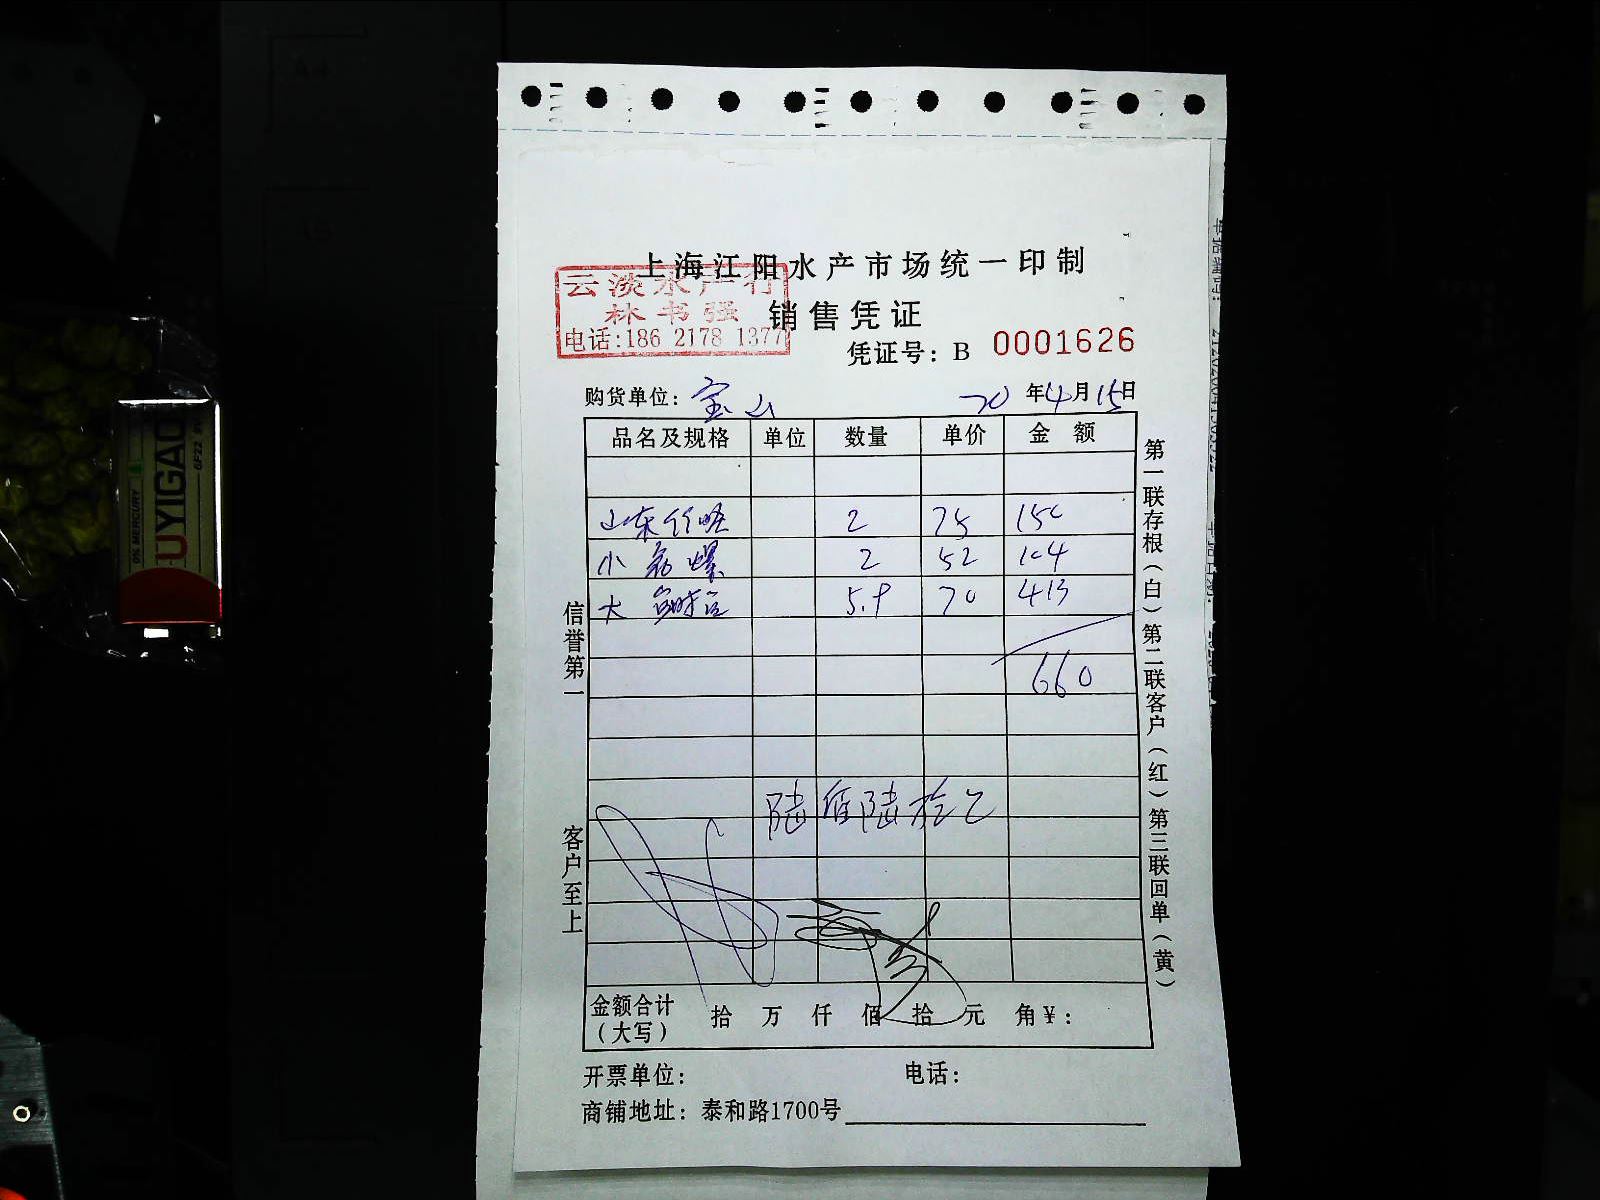 上海江阳水产市场统一印制
云淡水产行
林书强
电话:186 2178 1377
销售凭证
凭证号: B 0001626
购货单位: 宝山 20年4月15日
品名及规格 单位 数量 单价 金额
山东 2 75 150
小 螺 2 52 104
大 5.9 70 413
660
陆佰陆拾
金额合计(大写) 拾 万 仟 佰 拾 元 角 ¥:
开票单位: 电话:
商铺地址: 泰和路1700号
信誉第一
客户至上
第一联存根(白) 第二联客户(红) 第三联回单(黄)
0% MERCURY
6F22 9V